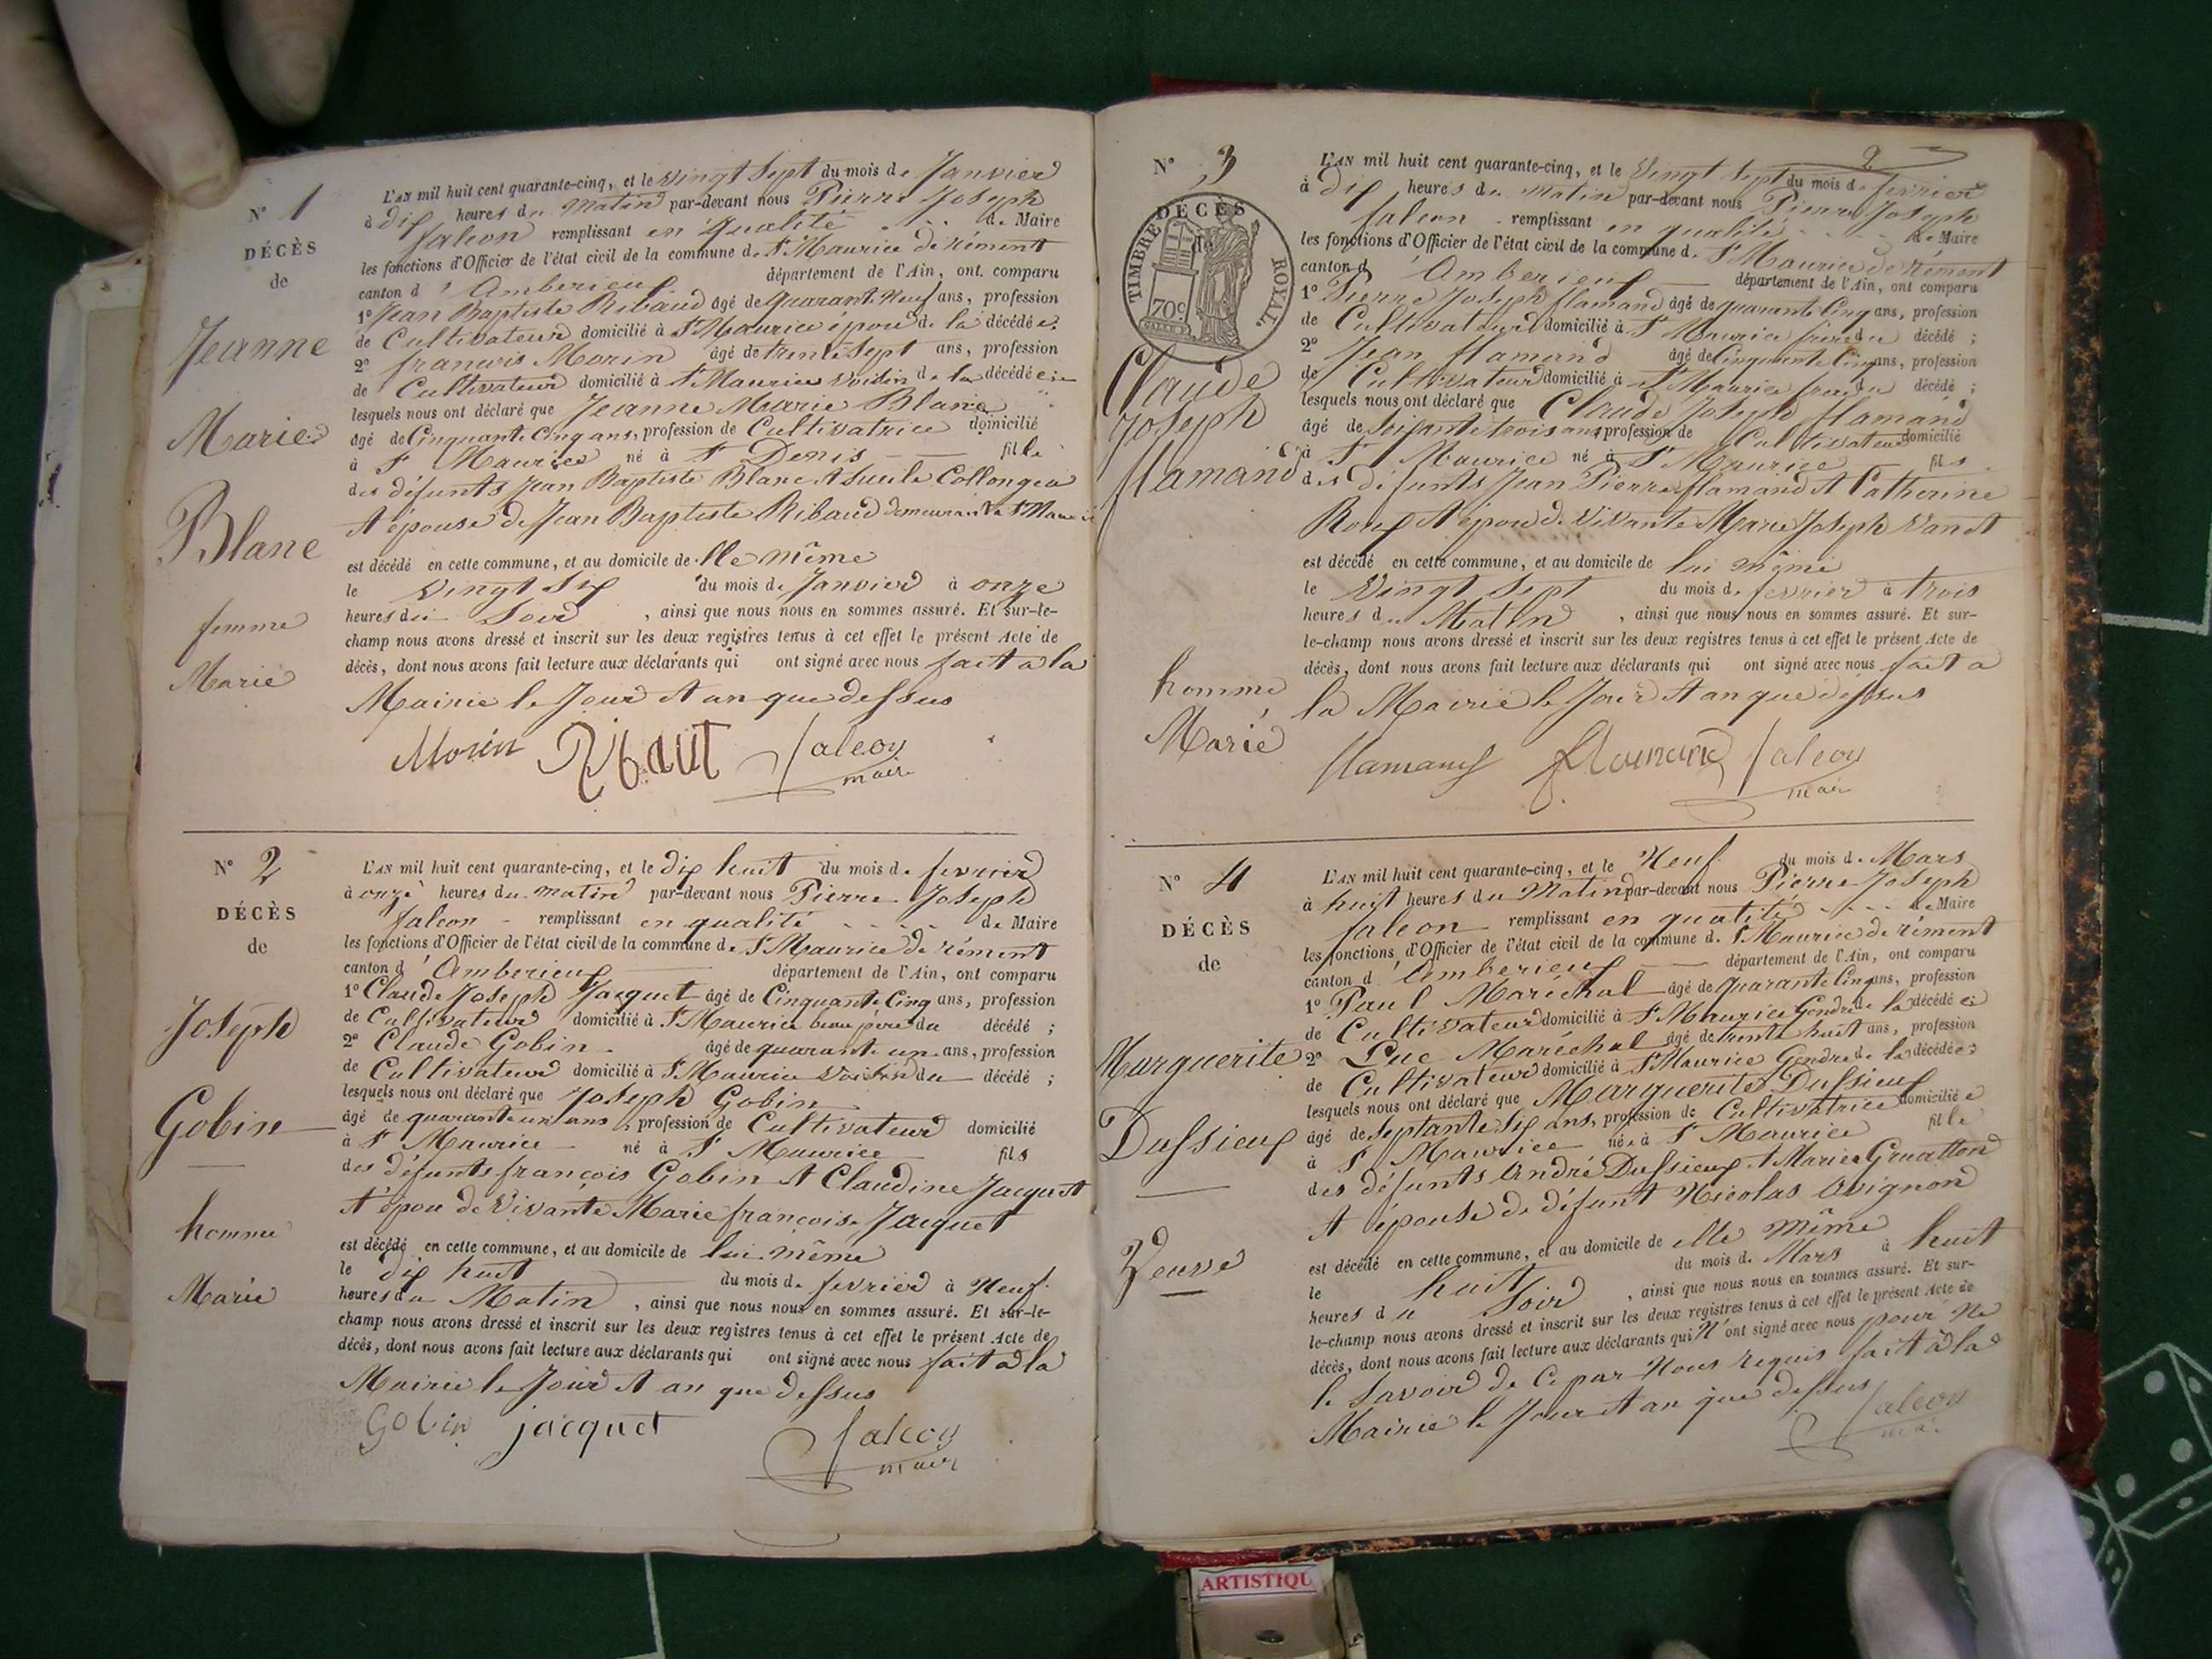 N° 1
DÉCÈS
de
Jeanne
Marie
Blanc
femme
Marié
L'AN mil huit cent quarante-cinq, et le vingt Sept du mois de Janvier
à dix heures du matin par-devant nous Pierre Joseph
falcon remplissant en qualité de Maire
les fonctions d'Officier de l'état civil de la commune de St Maurice de rément
canton d'Amberieux département de l'Ain, ont comparu
1° Jean Baptiste Ribaud âgé de quarant Neuf ans, profession
de Cultivateur domicilié à St Maurice épou de la décédée
2° francois Morin âgé de trente Sept ans, profession
de Cultivateur domicilié à St Maurice voisin de la décédée
lesquels nous ont déclaré que Jeanne Marie Blanc
âgé de Cinquante Cinq ans, profession de Cultivatrice domicilié
à St Maurice né à St Denis fille
des défunts Jean Baptiste Blanc et Collongea
et épouse de Jean Baptiste Ribaud demeurant a St
est décédé en cette commune, et au domicile de elle même
le vingt Six du mois de Janvier à onze
heures du Soir, ainsi que nous nous en sommes assuré. Et sur-le-
champ nous avons dressé et inscrit sur les deux registres tenus à cet effet le présent Acte de
décès, dont nous avons fait lecture aux déclarants qui ont signé avec nous fait a la
Mairie le Jour et an que dessus
Morin Ribaut falcon
maire
N° 2
DÉCÈS
de
Joseph
Gobin
homme
Marié
L'AN mil huit cent quarante-cinq, et le dix huit du mois de fevrier
à onze heures du matin par-devant nous Pierre Joseph
falcon remplissant en qualité de Maire
les fonctions d'Officier de l'état civil de la commune de St Maurice de rément
canton d'Amberieux département de l'Ain, ont comparu
1° Claude Joseph Jacquet âgé de Cinquante Cinq ans, profession
de Cultivateur domicilié à St Maurice beau père du décédé ;
2° Claude Gobin âgé de quarante un ans, profession
de Cultivateur domicilié à St Maurice voisin du décédé ;
lesquels nous ont déclaré que Joseph Gobin
âgé de quarante un ans, profession de Cultivateur domicilié
à St Maurice né à St Maurice fils
des défunts françois Gobin et Claudine Jacquet
et épou de vivante Marie françoise Jacquet
est décédé en cette commune, et au domicile de lui même
le dix huit du mois de fevrier à Neuf
heures du Matin, ainsi que nous nous en sommes assuré. Et sur-le-
champ nous avons dressé et inscrit sur les deux registres tenus à cet effet le présent Acte de
décès, dont nous avons fait lecture aux déclarants qui ont signé avec nous fait a la
Mairie le Jour et an que dessus
Gobin jacquet falcon
maire
2
N° 3
DÉCÈS
de
TIMBRE ROYAL
70c
Claude
Joseph
flamand
homme
Marié
L'AN mil huit cent quarante-cinq, et le vingt Sept du mois de fevrier
à dix heures du matin par-devant nous Pierre Joseph
falcon remplissant en qualité de Maire
les fonctions d'Officier de l'état civil de la commune de St Maurice de rément
canton d'Amberieux département de l'Ain, ont comparu
1° Pierre Joseph flamand âgé de quarante Cinq ans, profession
de Cultivateur domicilié à St Maurice frère du décédé ;
2° Jean flamand âgé de Cinquante Cinq ans, profession
de Cultivateur domicilié à St Maurice frere du décédé ;
lesquels nous ont déclaré que Claude Joseph flamand
âgé de Soixante trois ans profession de Cultivateur domicilié
à St Maurice né à St Maurice fils
des défunts Jean Pierre flamand et Catherine
Roux et épou de vivante Marie Joseph
est décédé en cette commune, et au domicile de lui même
le vingt Sept du mois de fevrier à trois
heures du Matin, ainsi que nous nous en sommes assuré. Et sur-
le-champ nous avons dressé et inscrit sur les deux registres tenus à cet effet le présent Acte de
décès, dont nous avons fait lecture aux déclarants qui ont signé avec nous fait a
la Mairie le Jour et an que dessus
flamand flamand falcon
maire
N° 4
DÉCÈS
de
Marguerite
Dussieux
Veuve
L'AN mil huit cent quarante-cinq, et le Neuf du mois de Mars
à huit heures du Matin par-devant nous Pierre Joseph
falcon remplissant en qualité de Maire
les fonctions d'Officier de l'état civil de la commune de St Maurice de rément
canton d'Amberieux département de l'Ain, ont comparu
1° Paul Maréchal âgé de quarante Cinq ans, profession
de Cultivateur domicilié à St Maurice Gendre de la décédée
2° Luc Maréchal âgé de trente huit ans, profession
de Cultivateur domicilié à St Maurice Gendre de la décédée
lesquels nous ont déclaré que Marguerite Dussieux
âgé de Septante Six ans, profession de Cultivatrice domicilié e
à St Maurice née à St Maurice fille
des défunts André Dussieux et Marie Gruatton
et épouse de défunt Nicolas Avignon
est décédé en cette commune, et au domicile de elle même
le huit du mois de Mars à huit
heures du Soir, ainsi que nous nous en sommes assuré. Et sur-
le-champ nous avons dressé et inscrit sur les deux registres tenus à cet effet le présent Acte de
décès, dont nous avons fait lecture aux déclarants qui N'ont signé avec nous pour Ne
le Savoir de Ce par Nous requis fait à la
Mairie le Jour et an que dessus
falcon
ARTISTIQU